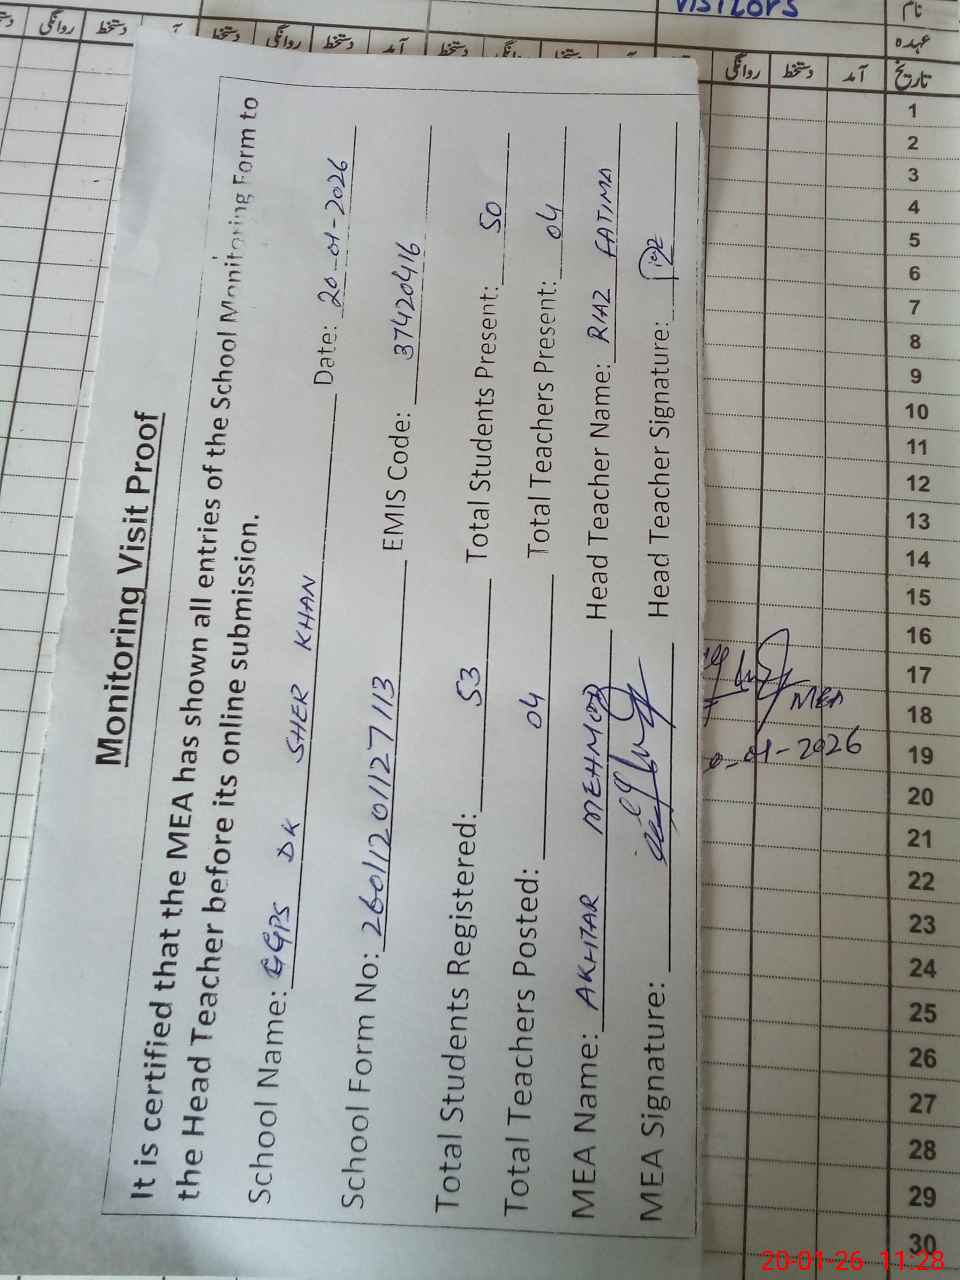 Visitors
نام
عہدہ
تاریخ آمد دستخط روانگی
Monitoring Visit Proof
It is certified that the MEA has shown all entries of the School Monitoring Form to
the Head Teacher before its online submission.
School Name: GGPS DK SHER KHAN Date: 20-01-2026
School Form No: 26011201127113 EMIS Code: 37420416
Total Students Registered: 53 Total Students Present: 50
Total Teachers Posted: 04 Total Teachers Present: 04
MEA Name: AKHTAR MEHMOOD Head Teacher Name: RIAZ FATIMA
MEA Signature: Head Teacher Signature:
MEA
-01-2026
1
2
3
4
5
6
7
8
9
10
11
12
13
14
15
16
17
18
19
20
21
22
23
24
25
26
27
28
29
30
20-01-26 11:28